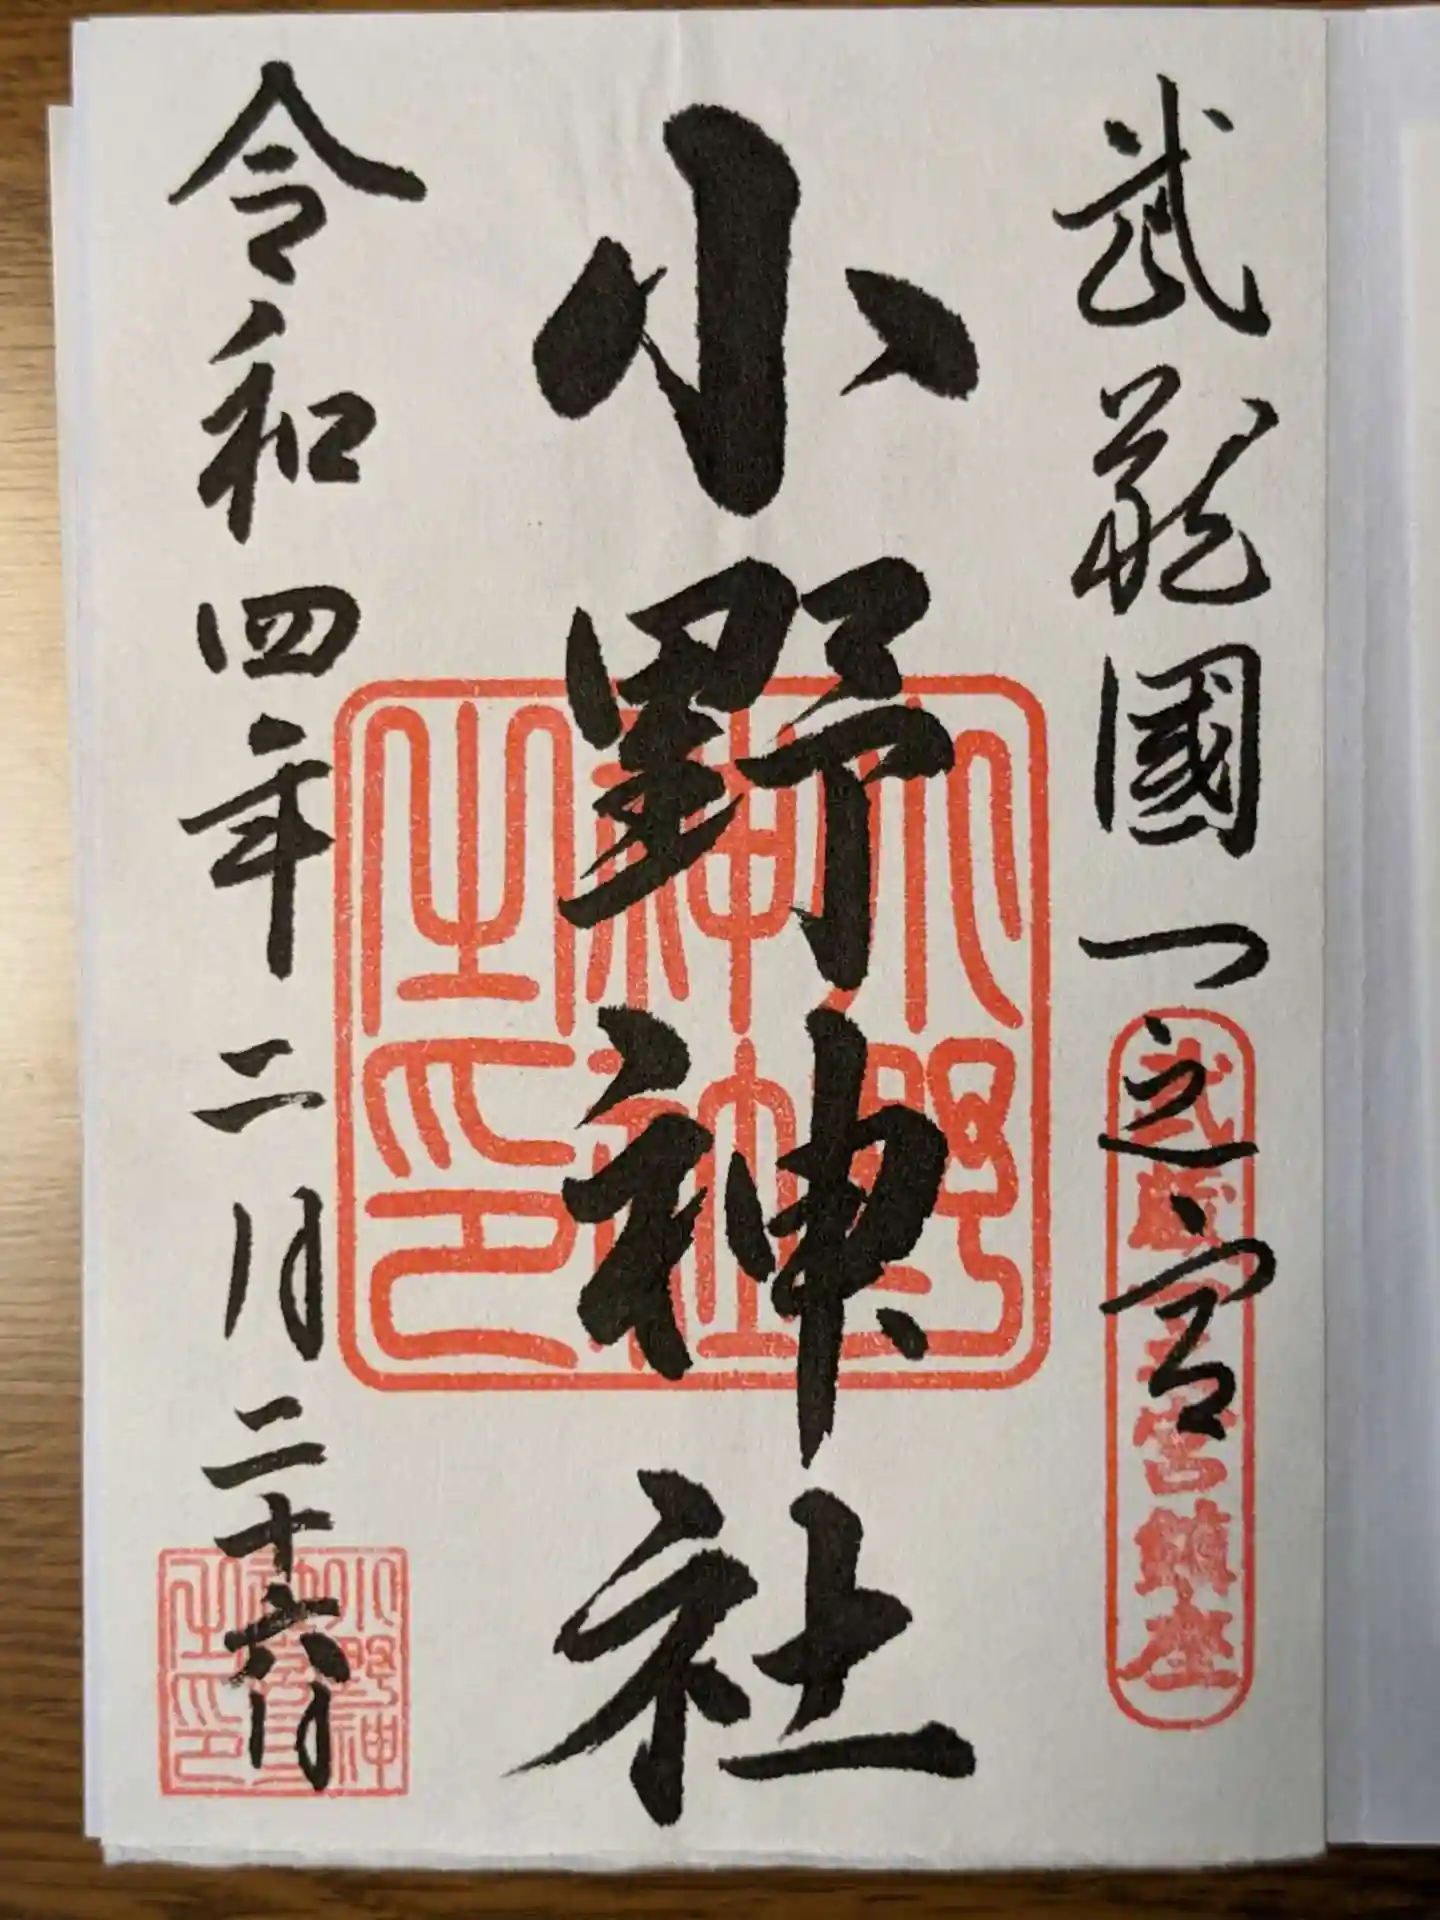 武蔵國一之宮
武蔵一之宮鎮座
小野神社
小野神社之印
令和四年二月二十六日
小野神
之印